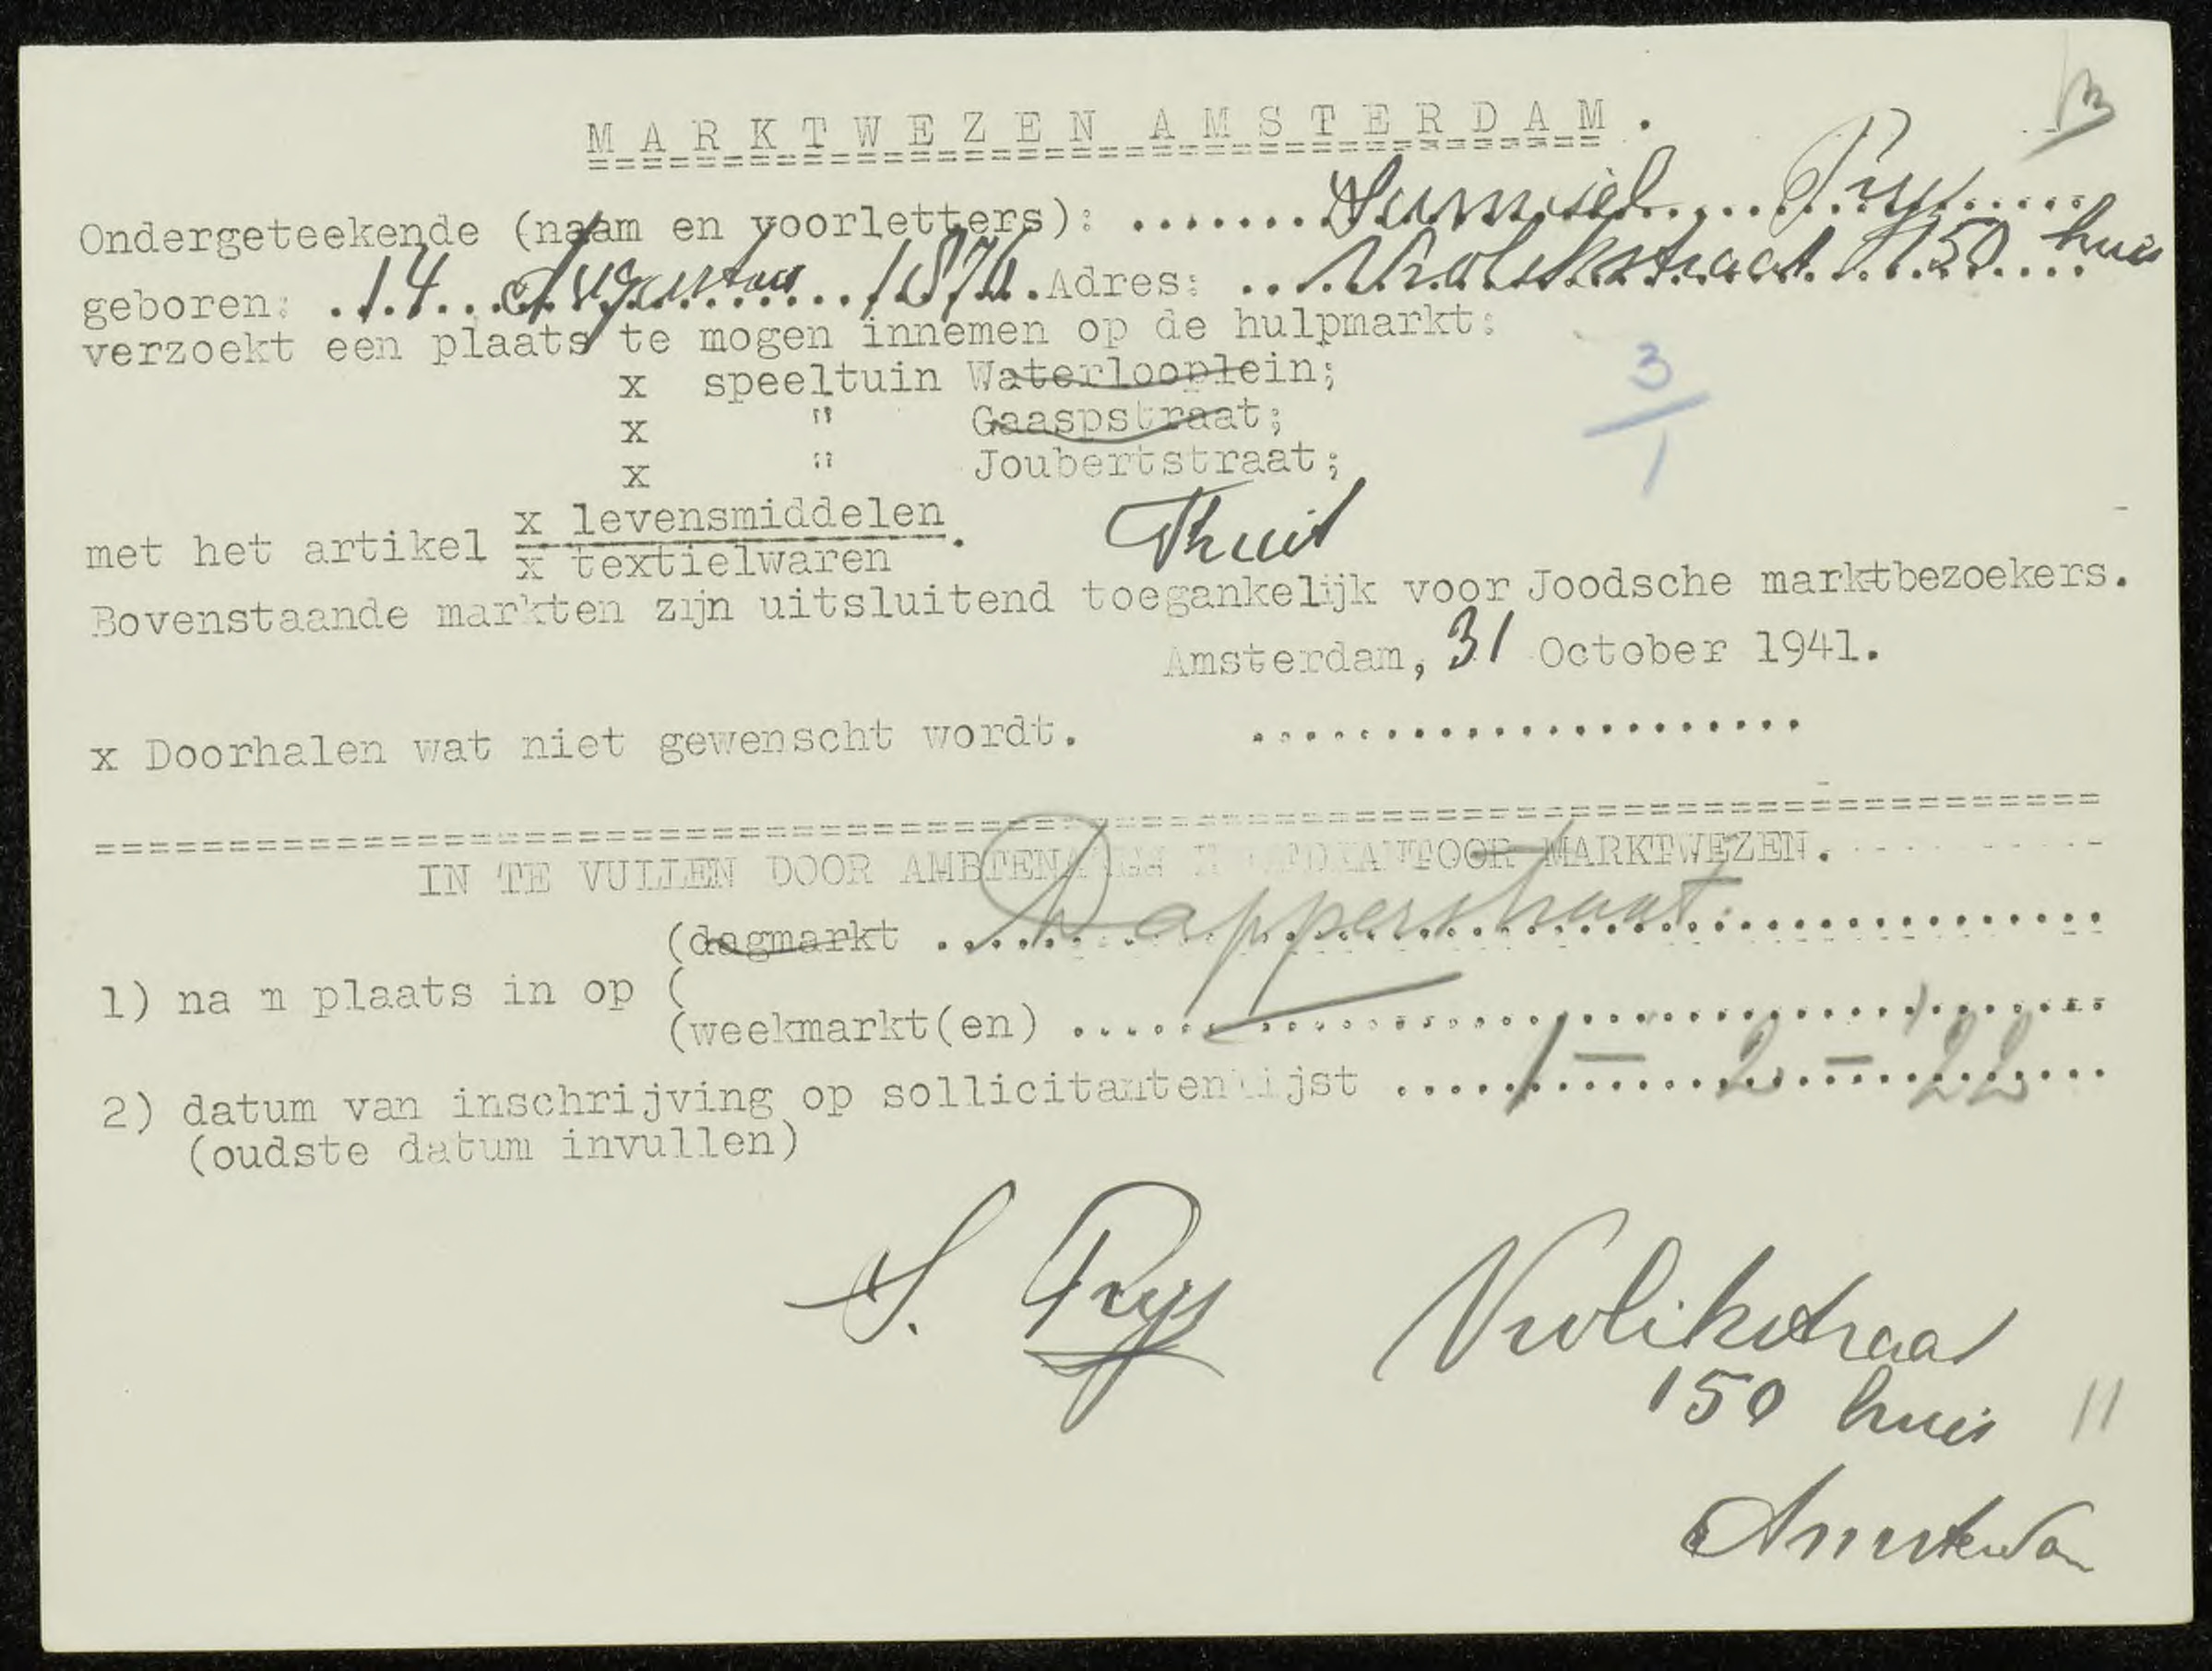 MARKTWEZEN AMSTERDAM.
Ondergeteekende (naam en voorletters): ....... ....
geboren: .14...Augustus...1874.Adres: ...Vrolikstraat 150 huis
verzoekt een plaats te mogen innemen op de hulpmarkt:
x speeltuin Waterlooplein;
x " Gaaspstraat;
x " Joubertstraat;
3
1
met het artikel x levensmiddelen
x textielwaren.
Fruit
Bovenstaande markten zijn uitsluitend toegankelijk voor Joodsche marktbezoekers.
Amsterdam, 31 October 1941.
x Doorhalen wat niet gewenscht wordt. .....................
IN TE VULLEN DOOR MARKTWEZEN.
(dagmarkt ..... Dapperstraat ...............
1) na m plaats in op (
(weekmarkt(en) .......................................
2) datum van inschrijving op sollicitantenlijst ..... 1 - 2 - '22 ...
(oudste datum invullen)
S. Prijs Vrolikstraat
150 huis 11
Amsterdam